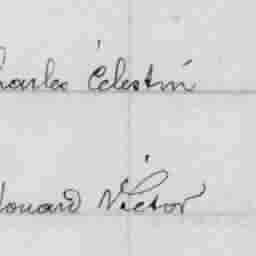 harles Célestin
douard Victor